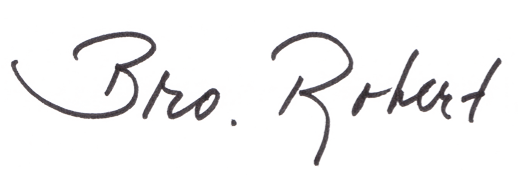 Bro. Robert